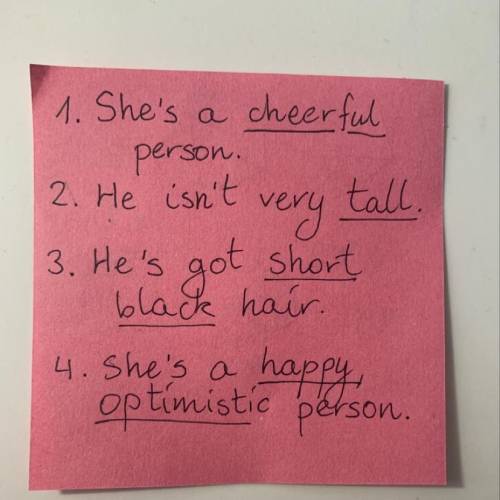 1. She's a cheerful
person.
2. He isn't very tall.
3. He's got short
black hair.
4. She's a happy,
optimistic person.